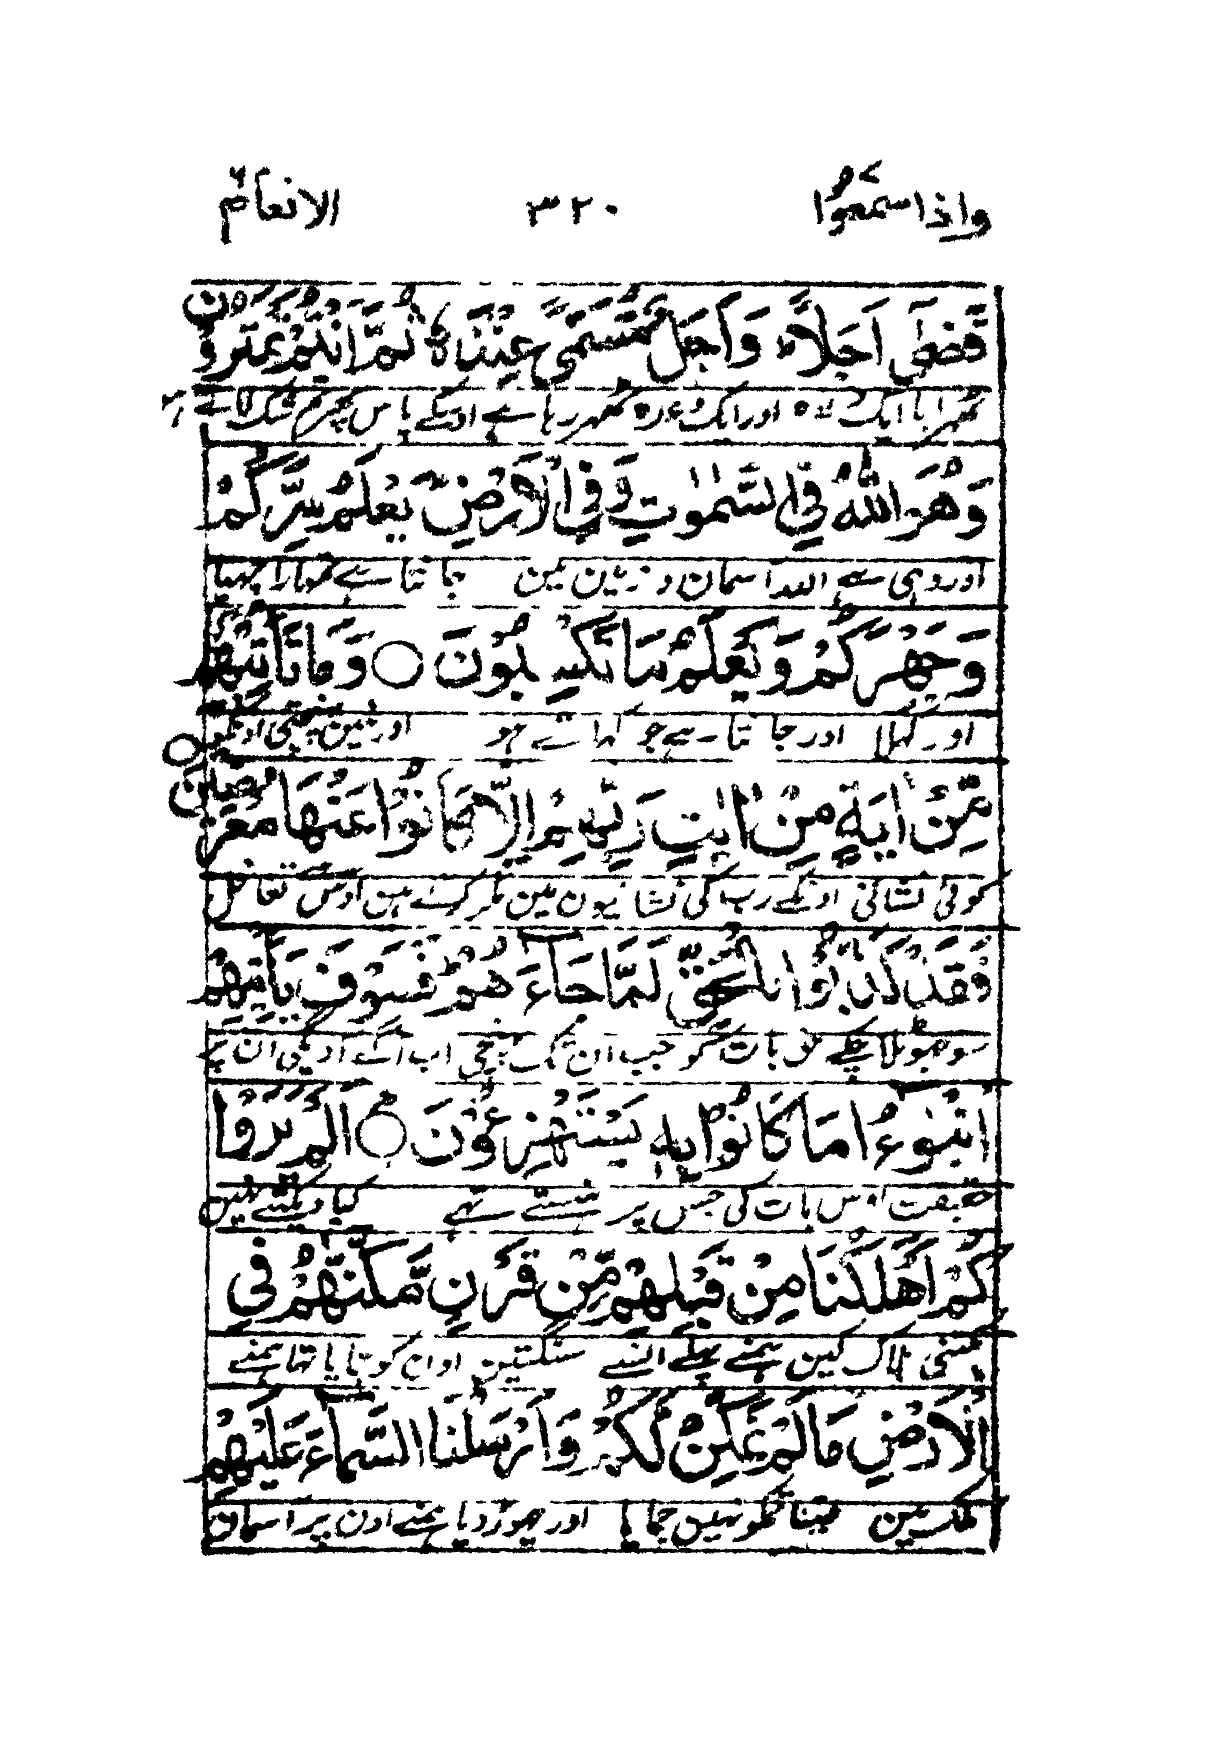 واذا سمعوا ٣٢٠ الانعام
قَضٰى اَجَلًا وَاَجَلٌ مُّسَمًّى عِنْدَهٗ ثُمَّ اَنْتُمْ تَمْتَرُوْنَ
ٹھرایا ایک وعدہ اور ایک وعدہ ٹھہر رہا ہے اوسکے پاس پھر تم شک لاتے
وَهُوَ اللّٰهُ فِى السَّمٰوٰتِ وَفِى الْاَرْضِ يَعْلَمُ سِرَّكُمْ
اور وہی ہے اللہ آسمان و زمین مین جانتا ہے تمہارا چھپا
وَجَهْرَكُمْ وَيَعْلَمُ مَا تَكْسِبُوْنَ ○ وَمَا تَاْتِيْهِمْ
اور کھلا اور جانتا ہے جو کماتے ہو اور نہین پہنچتی اونکو
مِّنْ اٰيَةٍ مِّنْ اٰيٰتِ رَبِّهِمْ اِلَّا كَانُوْا عَنْهَا مُعْرِضِيْنَ ○
کوئی نشانی اونکے رب کی نشانیون مین مگر کرتے ہین اوس سے تغافل
فَقَدْ كَذَّبُوْا بِالْحَقِّ لَمَّا جَآءَهُمْ فَسَوْفَ يَاْتِيْهِمْ
سو جھوٹلا چکے حق بات کو جب ان تک پہنچی اب آگے آویگی ان پر
اَنْۢبٰٓـؤُا مَا كَانُوْا بِهٖ يَسْتَهْزِءُوْنَ ○ اَلَمْ يَرَوْا
حقیقت اوس بات کی جس پر ہنستے تہے کیا دیکھتے نہین
كَمْ اَهْلَكْنَا مِنْ قَبْلِهِمْ مِّنْ قَرْنٍ مَّكَّنّٰهُمْ فِى
کتنی ہلاک کین ہمنے پہلے انسے سنگتین اون کو جمایا تھا ہمنے
الْاَرْضِ مَا لَمْ نُمَكِّنْ لَّكُمْ وَاَرْسَلْنَا السَّمَآءَ عَلَيْهِمْ
ملک مین جتنا تمکو نہین جمایا اور چھوڑ دیا ہمنے اون پر آسمان